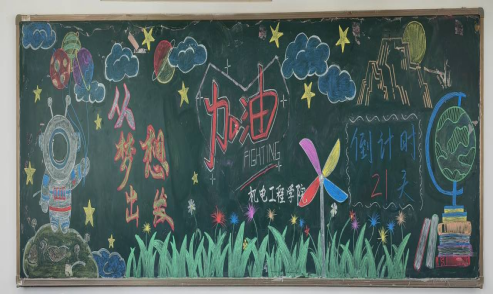 从
梦想
出发
加油
FIGHTING
机电工程学院
倒计时
21天